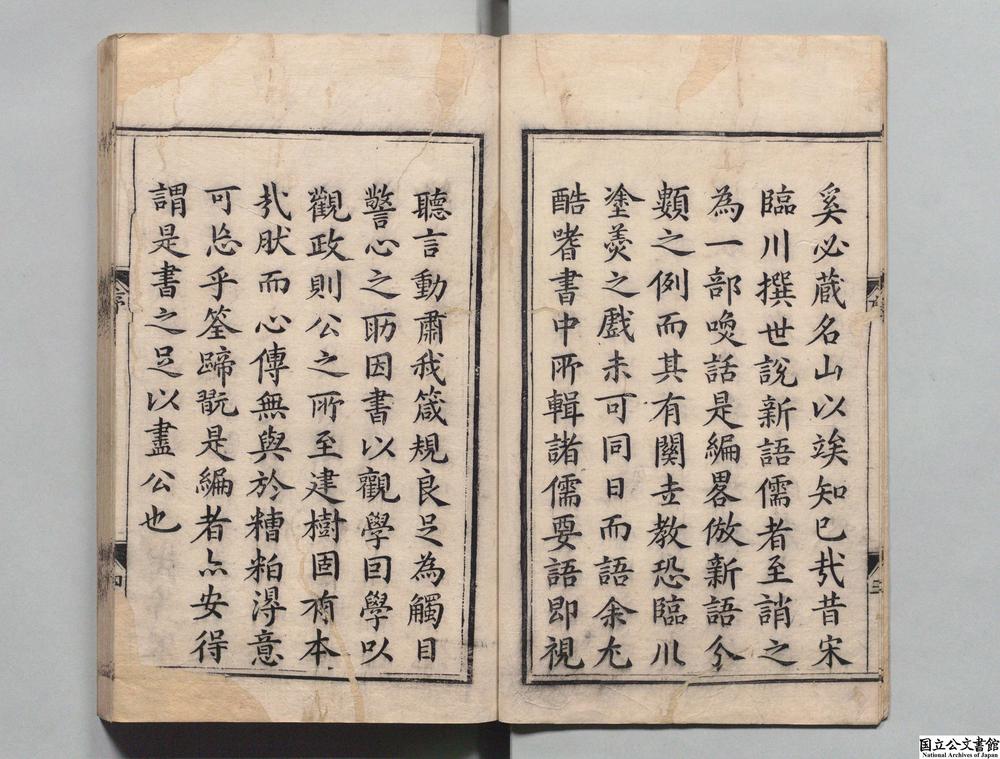 奚必蔵名山以竢知巳㢤昔宋
臨川撰世說新語儒者至誚之
為一部喚話是編畧倣新語今
䫏之例而其有關𠀍教恐臨川
塗羮之戲未可同日而語余尤
酷嗜書中所輯諸儒要語即視
聽言動肅我箴規良足為觸目
警心之助因書以觀學因學以
觀政則公之所至建樹固有本
㢤肰而心傳無與於糟粕得意
可㤀乎筌蹄翫是編者亦安得
謂是書之足以盡公也
序
三
四
国立公文書館
National Archives of Japan